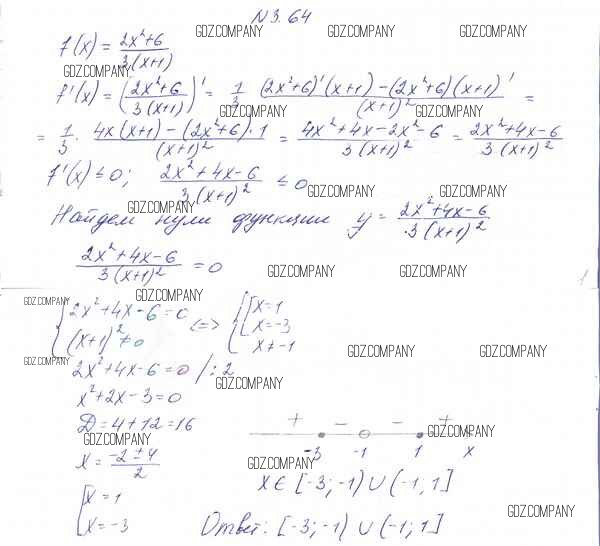 N 3. 64
f(x) = (2x²+6)/(3(x+1))
f'(x) = ((2x²+6)/(3(x+1)))' = 1/3 · ((2x²+6)'(x+1) – (2x²+6)(x+1)')/(x+1)² =
= 1/3 · (4x(x+1) – (2x²+6)·1)/(x+1)² = (4x²+4x–2x²–6)/(3(x+1)²) = (2x²+4x–6)/(3(x+1)²)
f'(x) ≤ 0; (2x²+4x–6)/(3(x+1)²) ≤ 0
Найдем нули функции y = (2x²+4x–6)/(3(x+1)²)
(2x²+4x–6)/(3(x+1)²) = 0
{ 2x²+4x–6=0 <=> { [ x=1
(x+1)² ≠ 0 x=-3
x ≠ -1
2x²+4x–6=0 /:2
x²+2x–3=0
D = 4+12=16
x = (-2±4)/2
[ x = 1
x = -3
+ – – +
-3 -1 1 x
x ∈ [-3;-1) ∪ (-1;1]
Ответ: [-3;-1) ∪ (-1;1]
GDZ.COMPANY GDZ.COMPANY GDZ.COMPANY
GDZ.COMPANY
GDZ.COMPANY GDZ.COMPANY
GDZ.COMPANY GDZ.COMPANY
GDZ.COMPANY
GDZ.COMPANY GDZ.COMPANY
GDZ.COMPANY GDZ.COMPANY
GDZ.COMPANY GDZ.COMPANY
GDZ.COMPANY
GDZ.COMPANY
GDZ.COMPANY GDZ.COMPANY
GDZ.COMPANY
GDZ.COMPANY